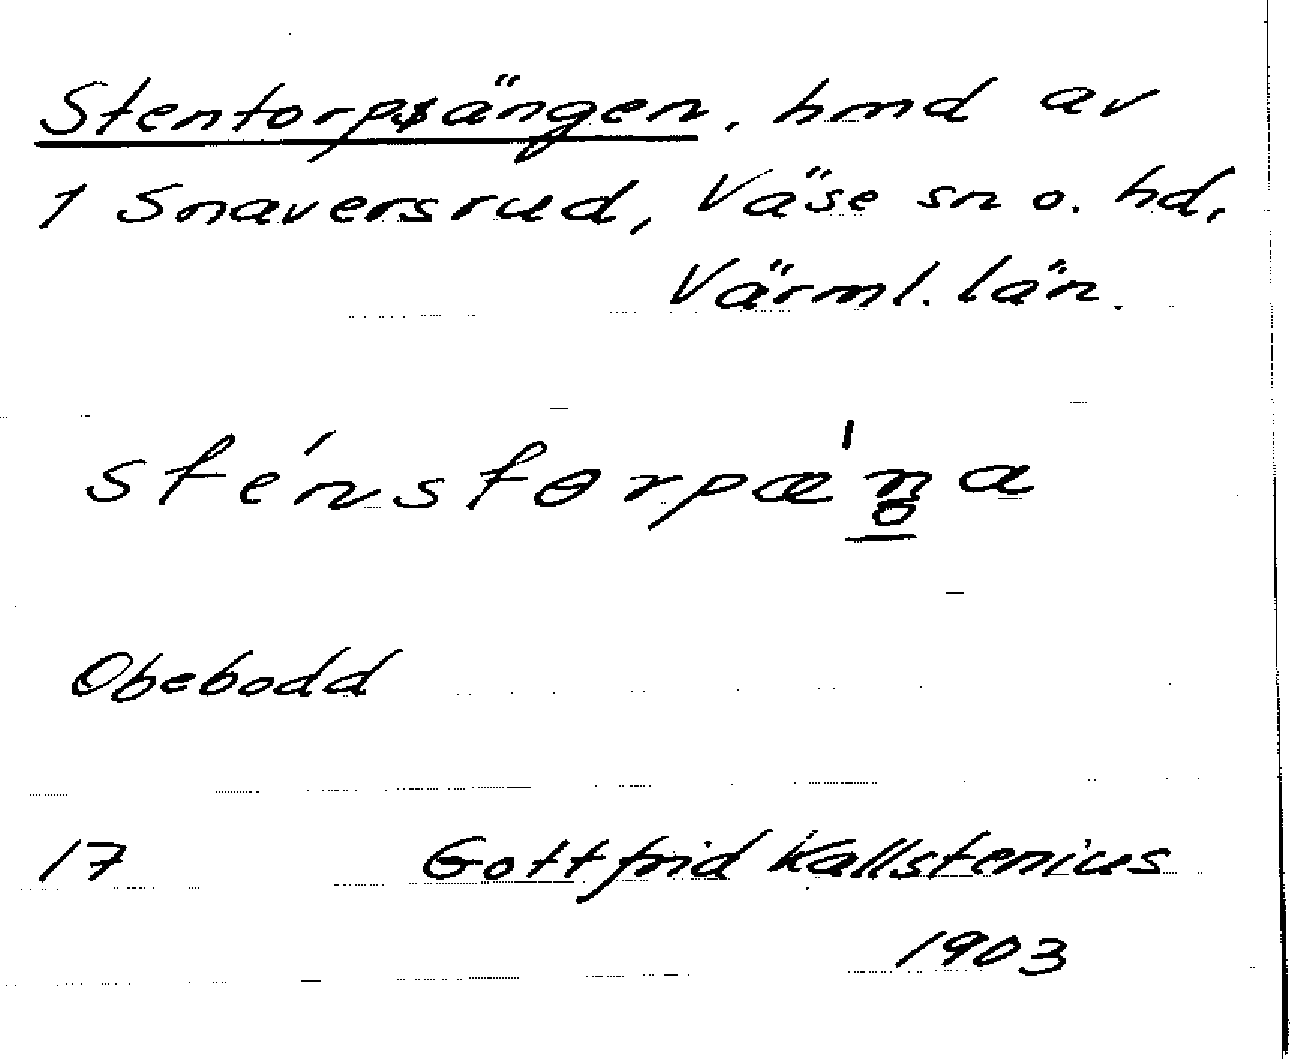 Stentorpsängen, hmd av
1 Snaversrud, Väse sn o. hd,
Värml. län.
sténstɵrpæ̍ŋa
Obebodd
17 Gottfrid Kallstenius
1903